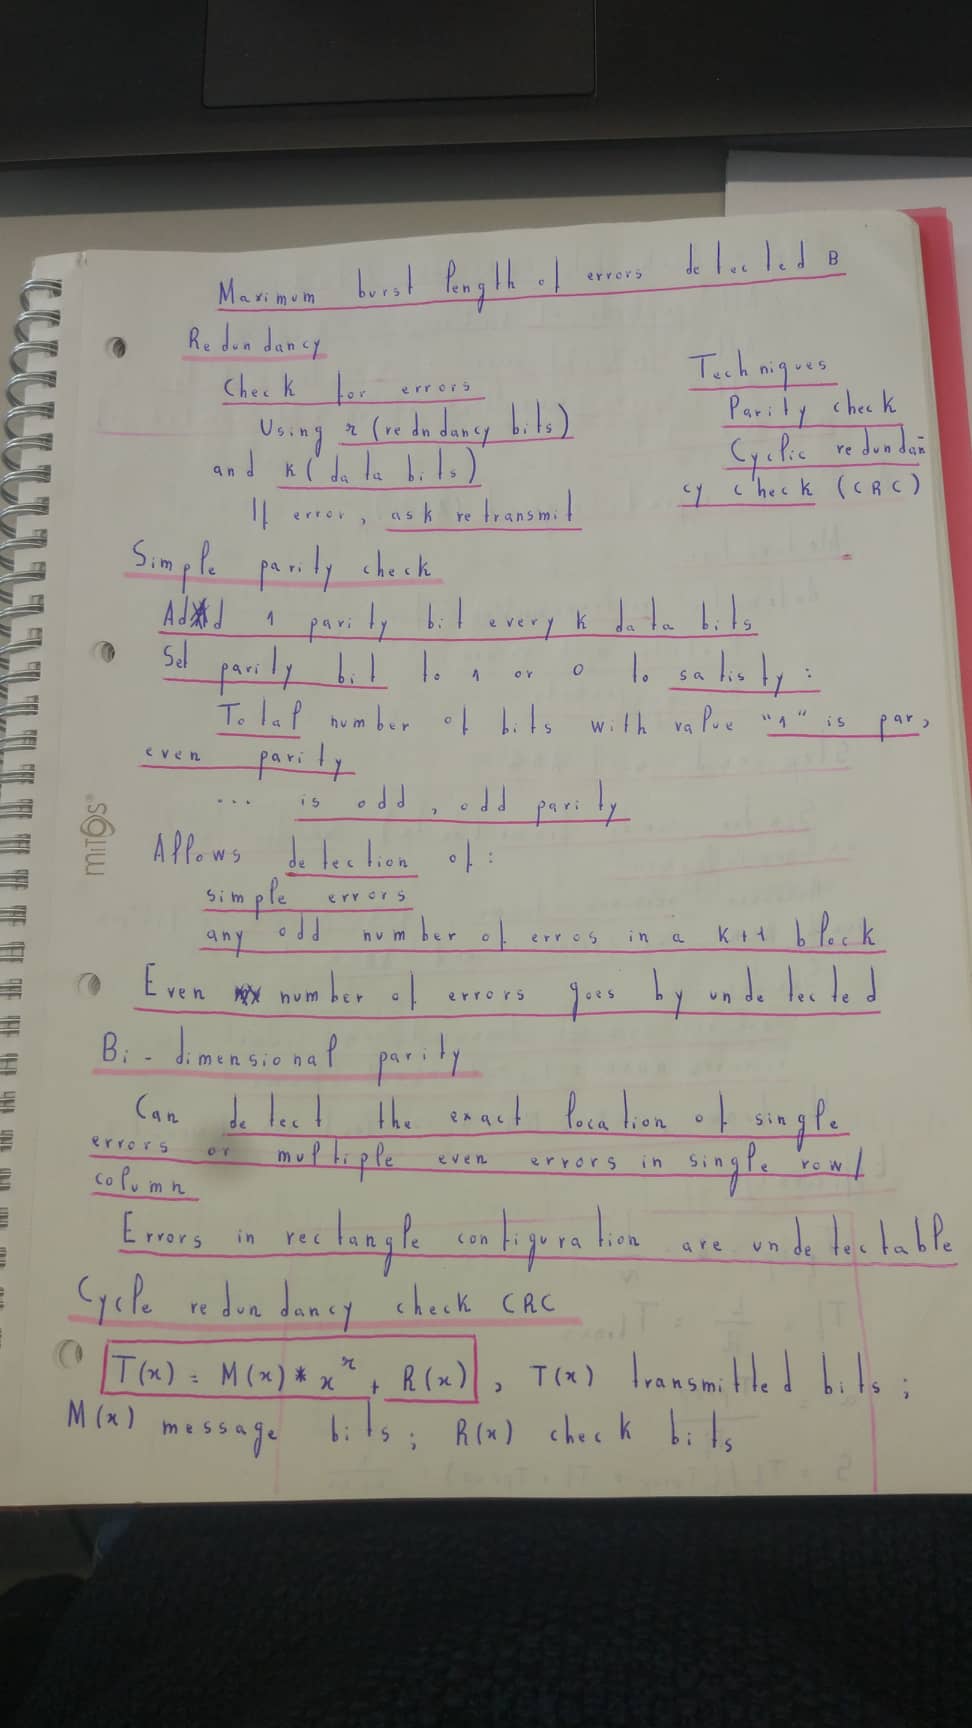 Maximum burst length of errors detected B
Redundancy
Check for errors
Using r (redndancy bits)
and k (data bits)
If error, ask retransmit
Techniques
Parity check
Cyclic redundan
cy check (CRC)
Simple parity check
Add 1 parity bit every k data bits
Set parity bit to 1 or 0 to satisfy:
Total number of bits with value "1" is par,
even parity
... is odd, odd parity
Allows detection of:
simple errors
any odd number of erros in a k+1 block
Even number of errors goes by undetected
Bi-dimensional parity
Can detect the exact location of single
errors or multiple even errors in single row/
column
Errors in rectangle configuration are undetectable
Cycle redundancy check CRC
T(x) = M(x) * x^r + R(x), T(x) transmitted bits;
M(x) message bits; R(x) check bits
MiTOS